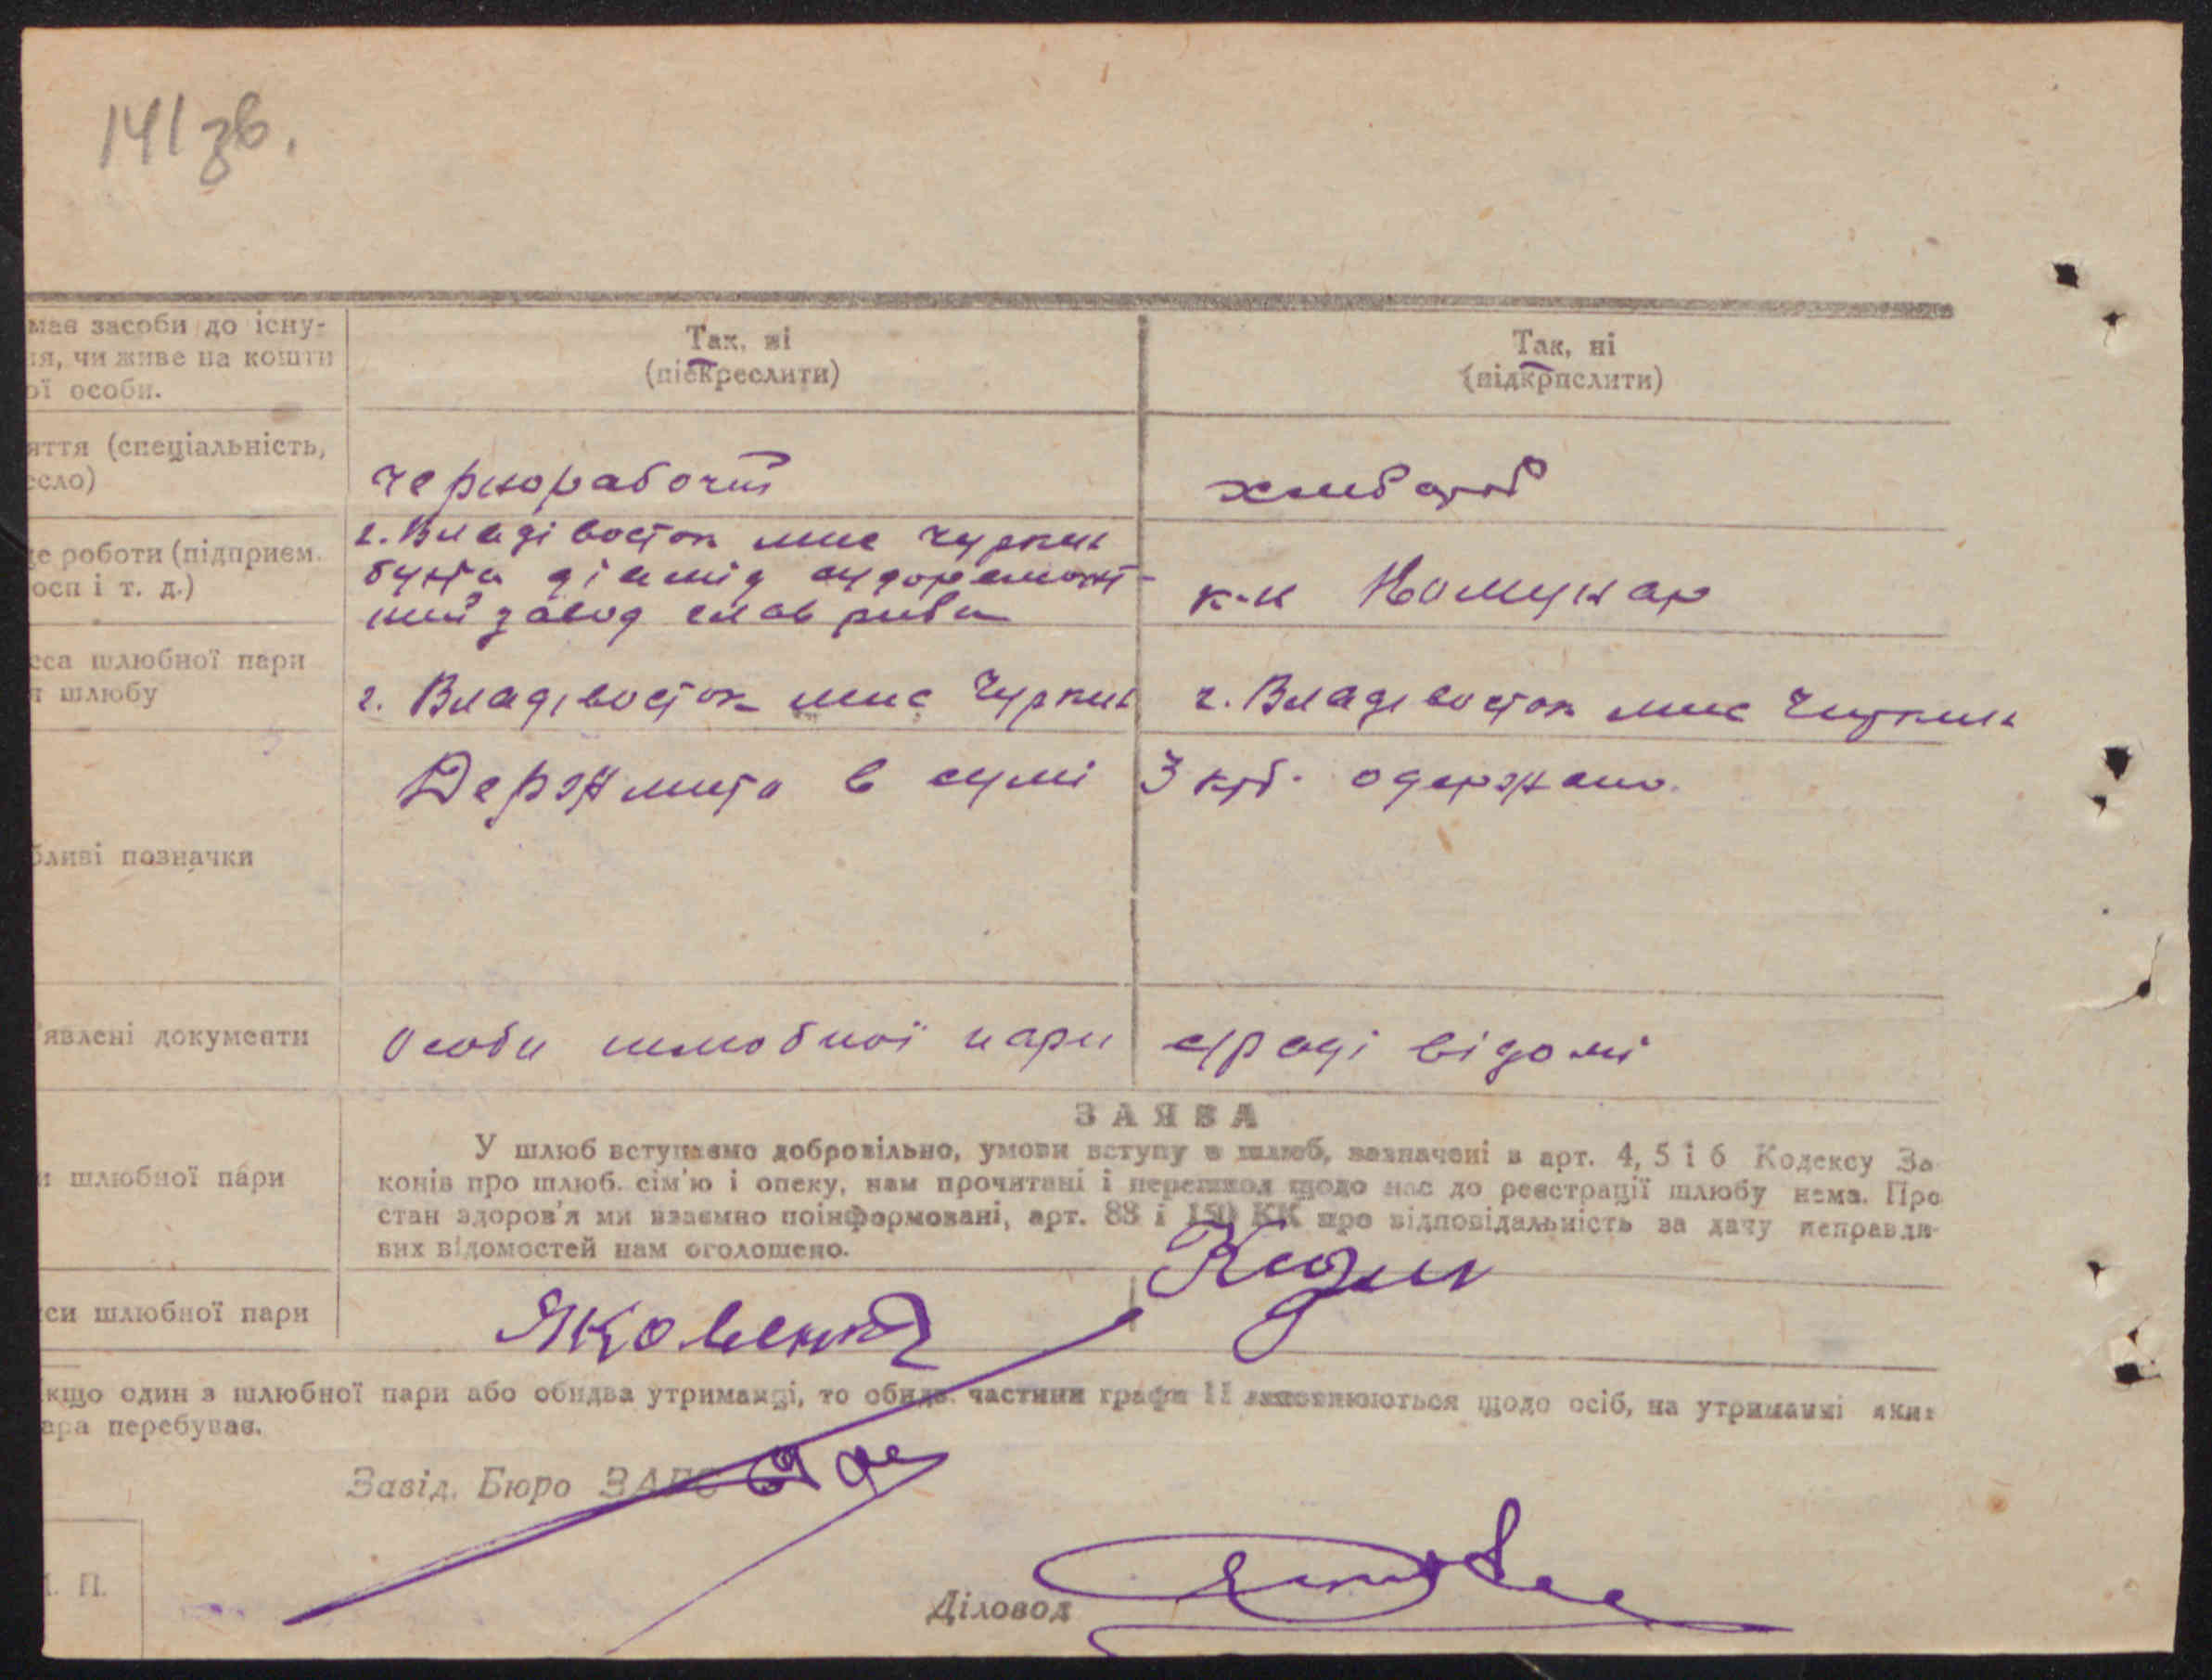 141 зв.
має засоби до існу-
ня, чи живе на кошти
ої особи.
Так, ні
(піекреслити)
Так, ні
(підкрпслити)
яття (спеціальність,
есло)
чернорабочий
хлибороб
це роботи (підприєм.
осп і т. д.)
г. Владівосток мис Чуркин
бухта діамід судоремонт-
ний завод глав риба
к-п Комунар
еса шлюбної пари
я шлюбу
г. Владівосток мис Чуркин
г. Владівосток мис Чуркин
бливі позначки
Держмито в сумі 3 крб. одержано.
'явлені документи
Особи шлюбної пари с/раді відомі
и шлюбної пари
ЗАЯВА
У шлюб вступаємо добровільно, умови вступу в шлюб, зазначені в арт. 4, 5 і 6 Кодексу За
конів про шлюб. сім'ю і опеку, нам прочитані і перешкод щодо нас до реєстрації шлюбу нема. Про
стан здоров'я ми взаємно поінформовані, арт. 88 і 150 КК про відповідальність за дачу неправди-
вих відомостей нам оголошено.
си шлюбної пари
Яковенко
кщо один з шлюбної пари або обидва утриманці, то обидв. частини графи 11 заповнюються щодо осіб, на утриманні яких
ара перебуває.
Завід. Бюро ЗАГС
. П.
Діловод